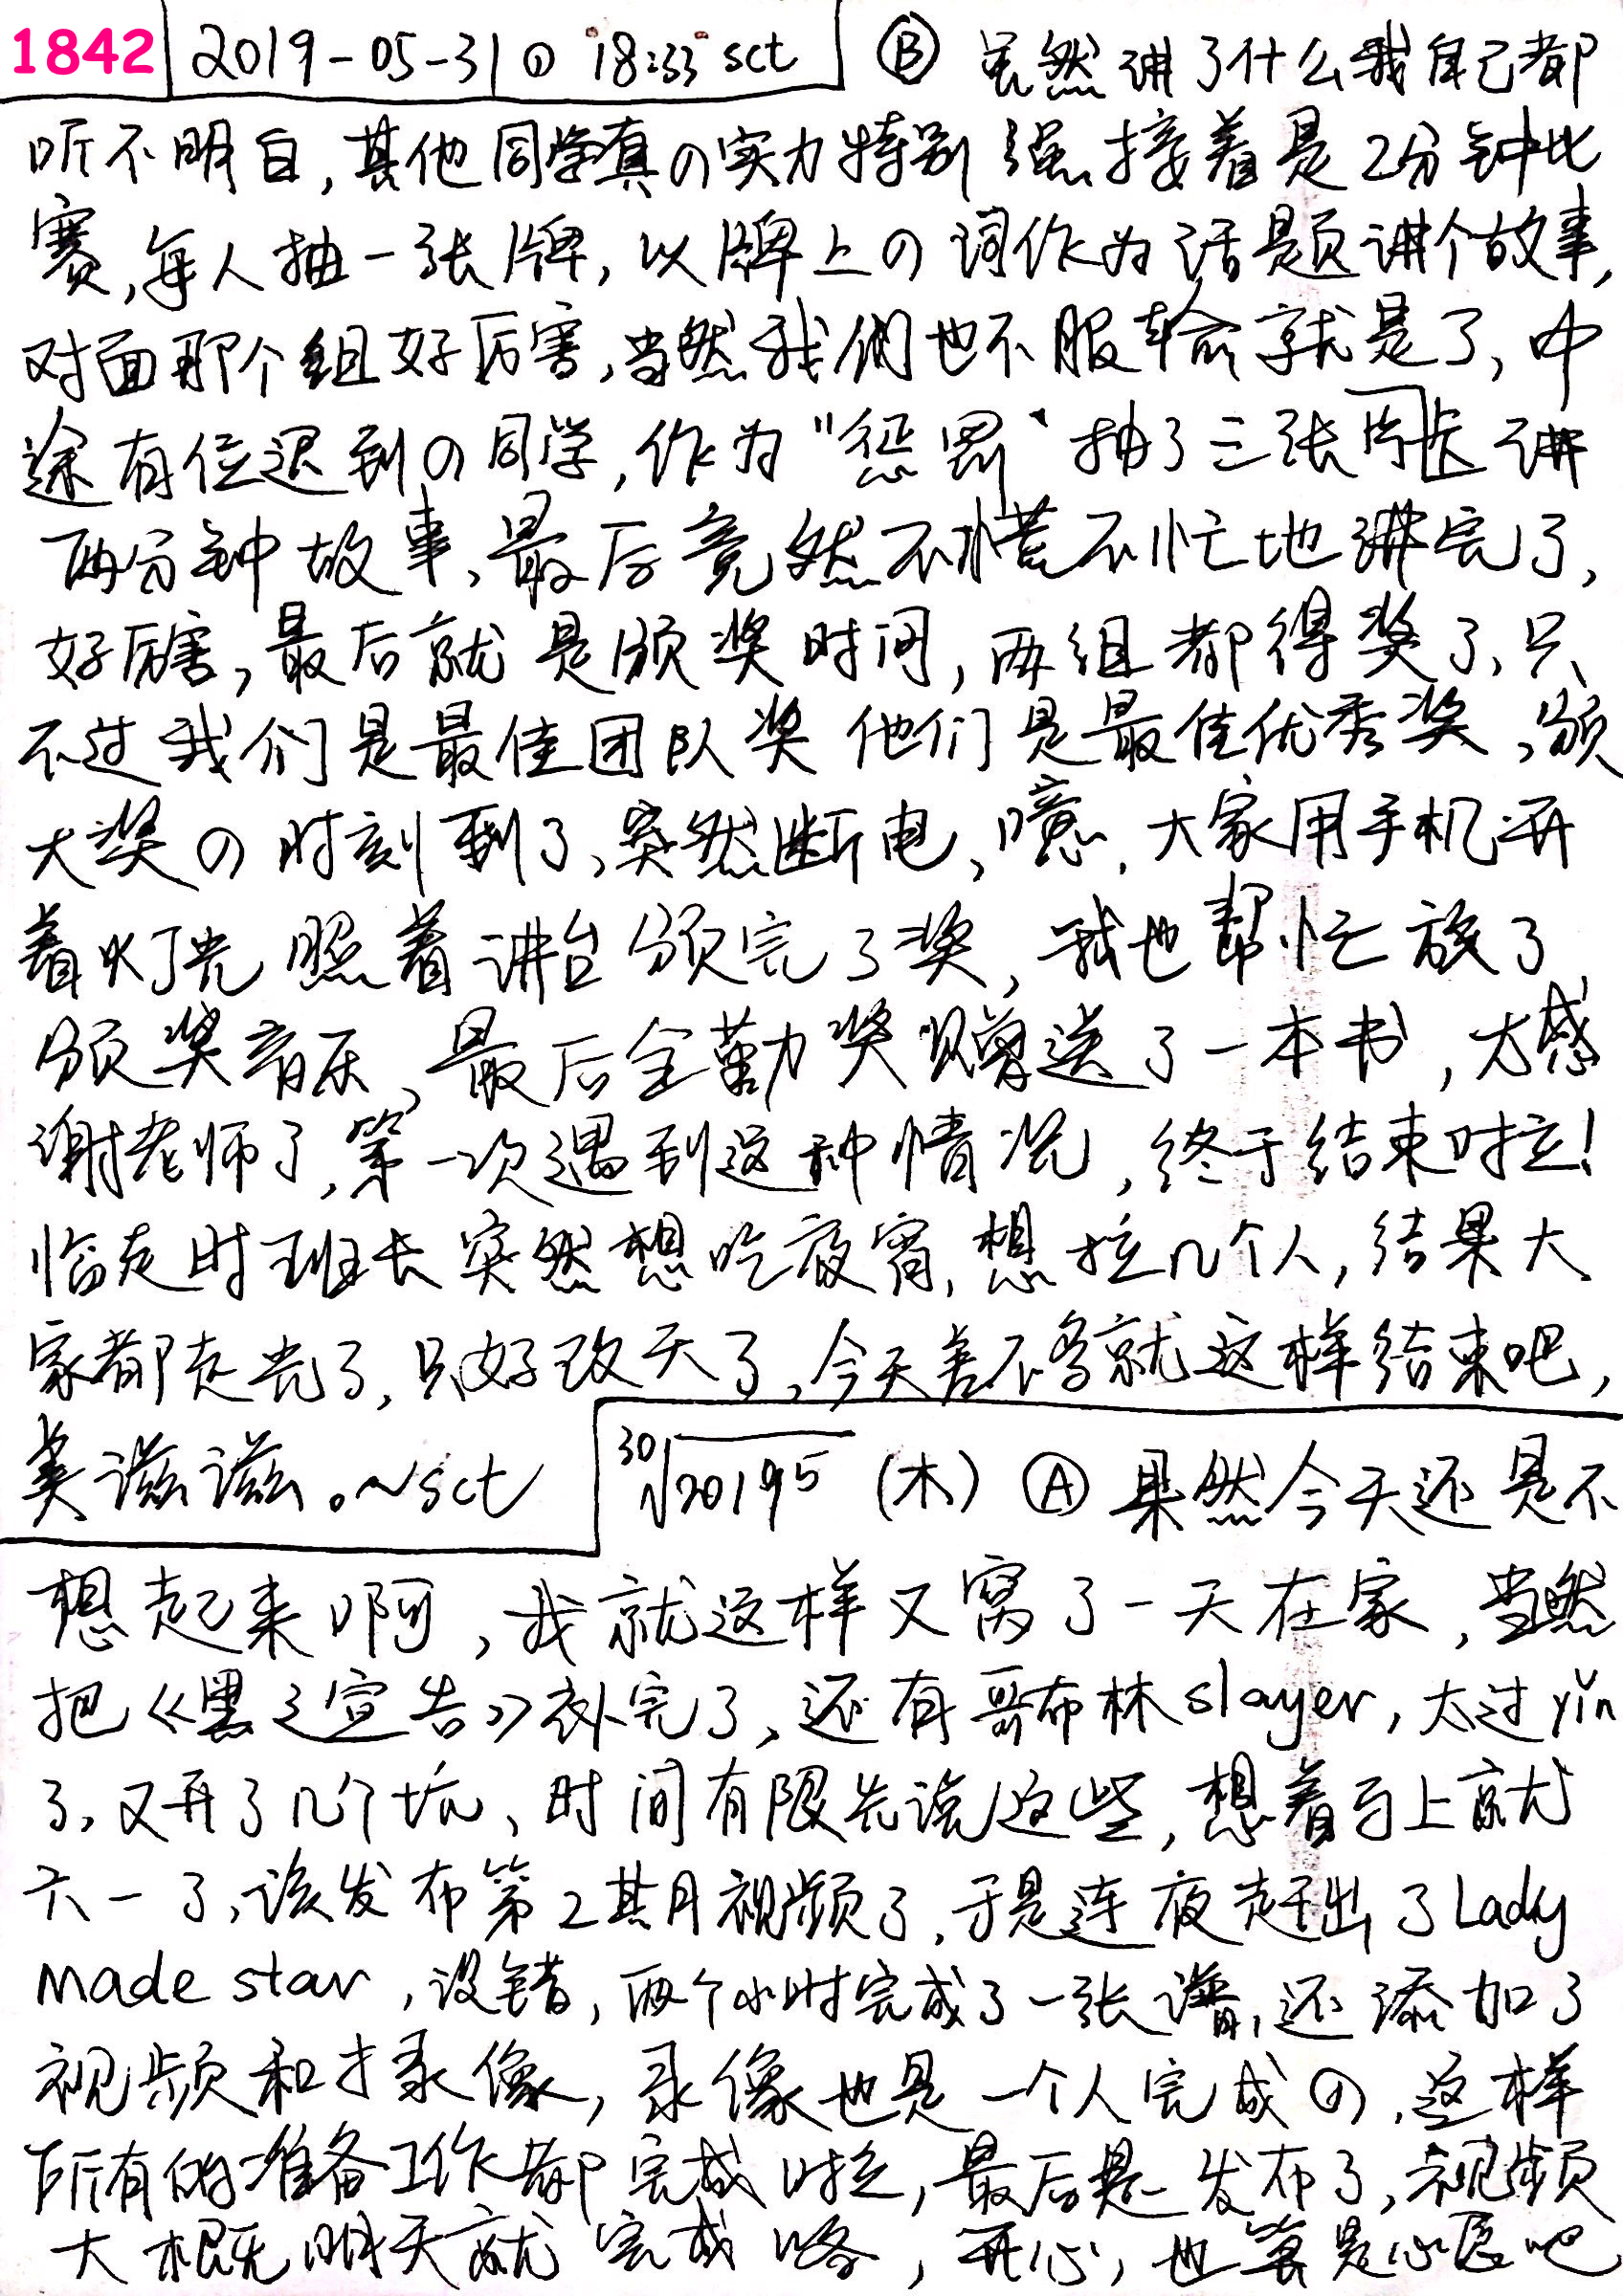 1842 2019-05-31① 18:33 sct Ⓑ 虽然讲了什么我自己都
听不明白,其他同学真の实力特别强.接着是2分钟比
赛,每人抽一张牌,以牌上の词作为话题讲个故事,
对面那个组好厉害,当然我们也不服输就是了,中
途有位迟到の同学,作为"惩罚"抽了三张卡讲
两分钟故事、最后竟然不慌不忙地讲完了,
好厉害,最后就是颁奖时间,两组都得奖了、只
不过我们是最佳团队奖 他们是最佳优秀奖,颁
大奖の时刻到了,突然断电,噫,大家用手机开
着灯光照着讲台颁完了奖,我也帮忙放了
颁奖音乐、最后全勤奖赠送了一本书,太感
谢老师了,第一次遇到这种情况,终于结束时拉!
临走时班长突然想吃夜宵,想拉几个人,结果大
家都走光了,只好改天了,今天差不多就这样结束吧,
美滋滋。~sct ³⁰√2019⁵ (木) Ⓐ 果然今天还是不
想起来啊,我就这样又窝了一天在家,当然
把《黑之宣告》补完了,还有哥布林slayer,太过yǐn
了,又开了几个坑、时间有限先说这些,想着马上就
六一了,该发布第2期视频了,于是连夜赶出了Lady
made star,没错,两个小时完成了一张谱,还添加了
视频和录像,录像也是一个人完成の,这样
所有的准备工作都完成啦,最后是发布了,视频
大概明天就完成咯,开心,也算是心愿吧